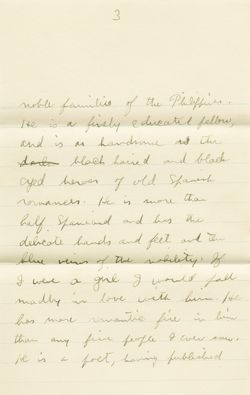 3
noble families of the Philippines.
He is a finely educated fellow,
and is as handsome as the
dark black haired and black
eyed heroes of old Spanish
romances. He is more than
half Spaniard and has the
delicate hands and feet, and the
blue veins of the nobility. If
I were a girl I would fall
madly in love with him. He
has more romantic fire in him
than any five people I ever saw.
He is a poet, having published